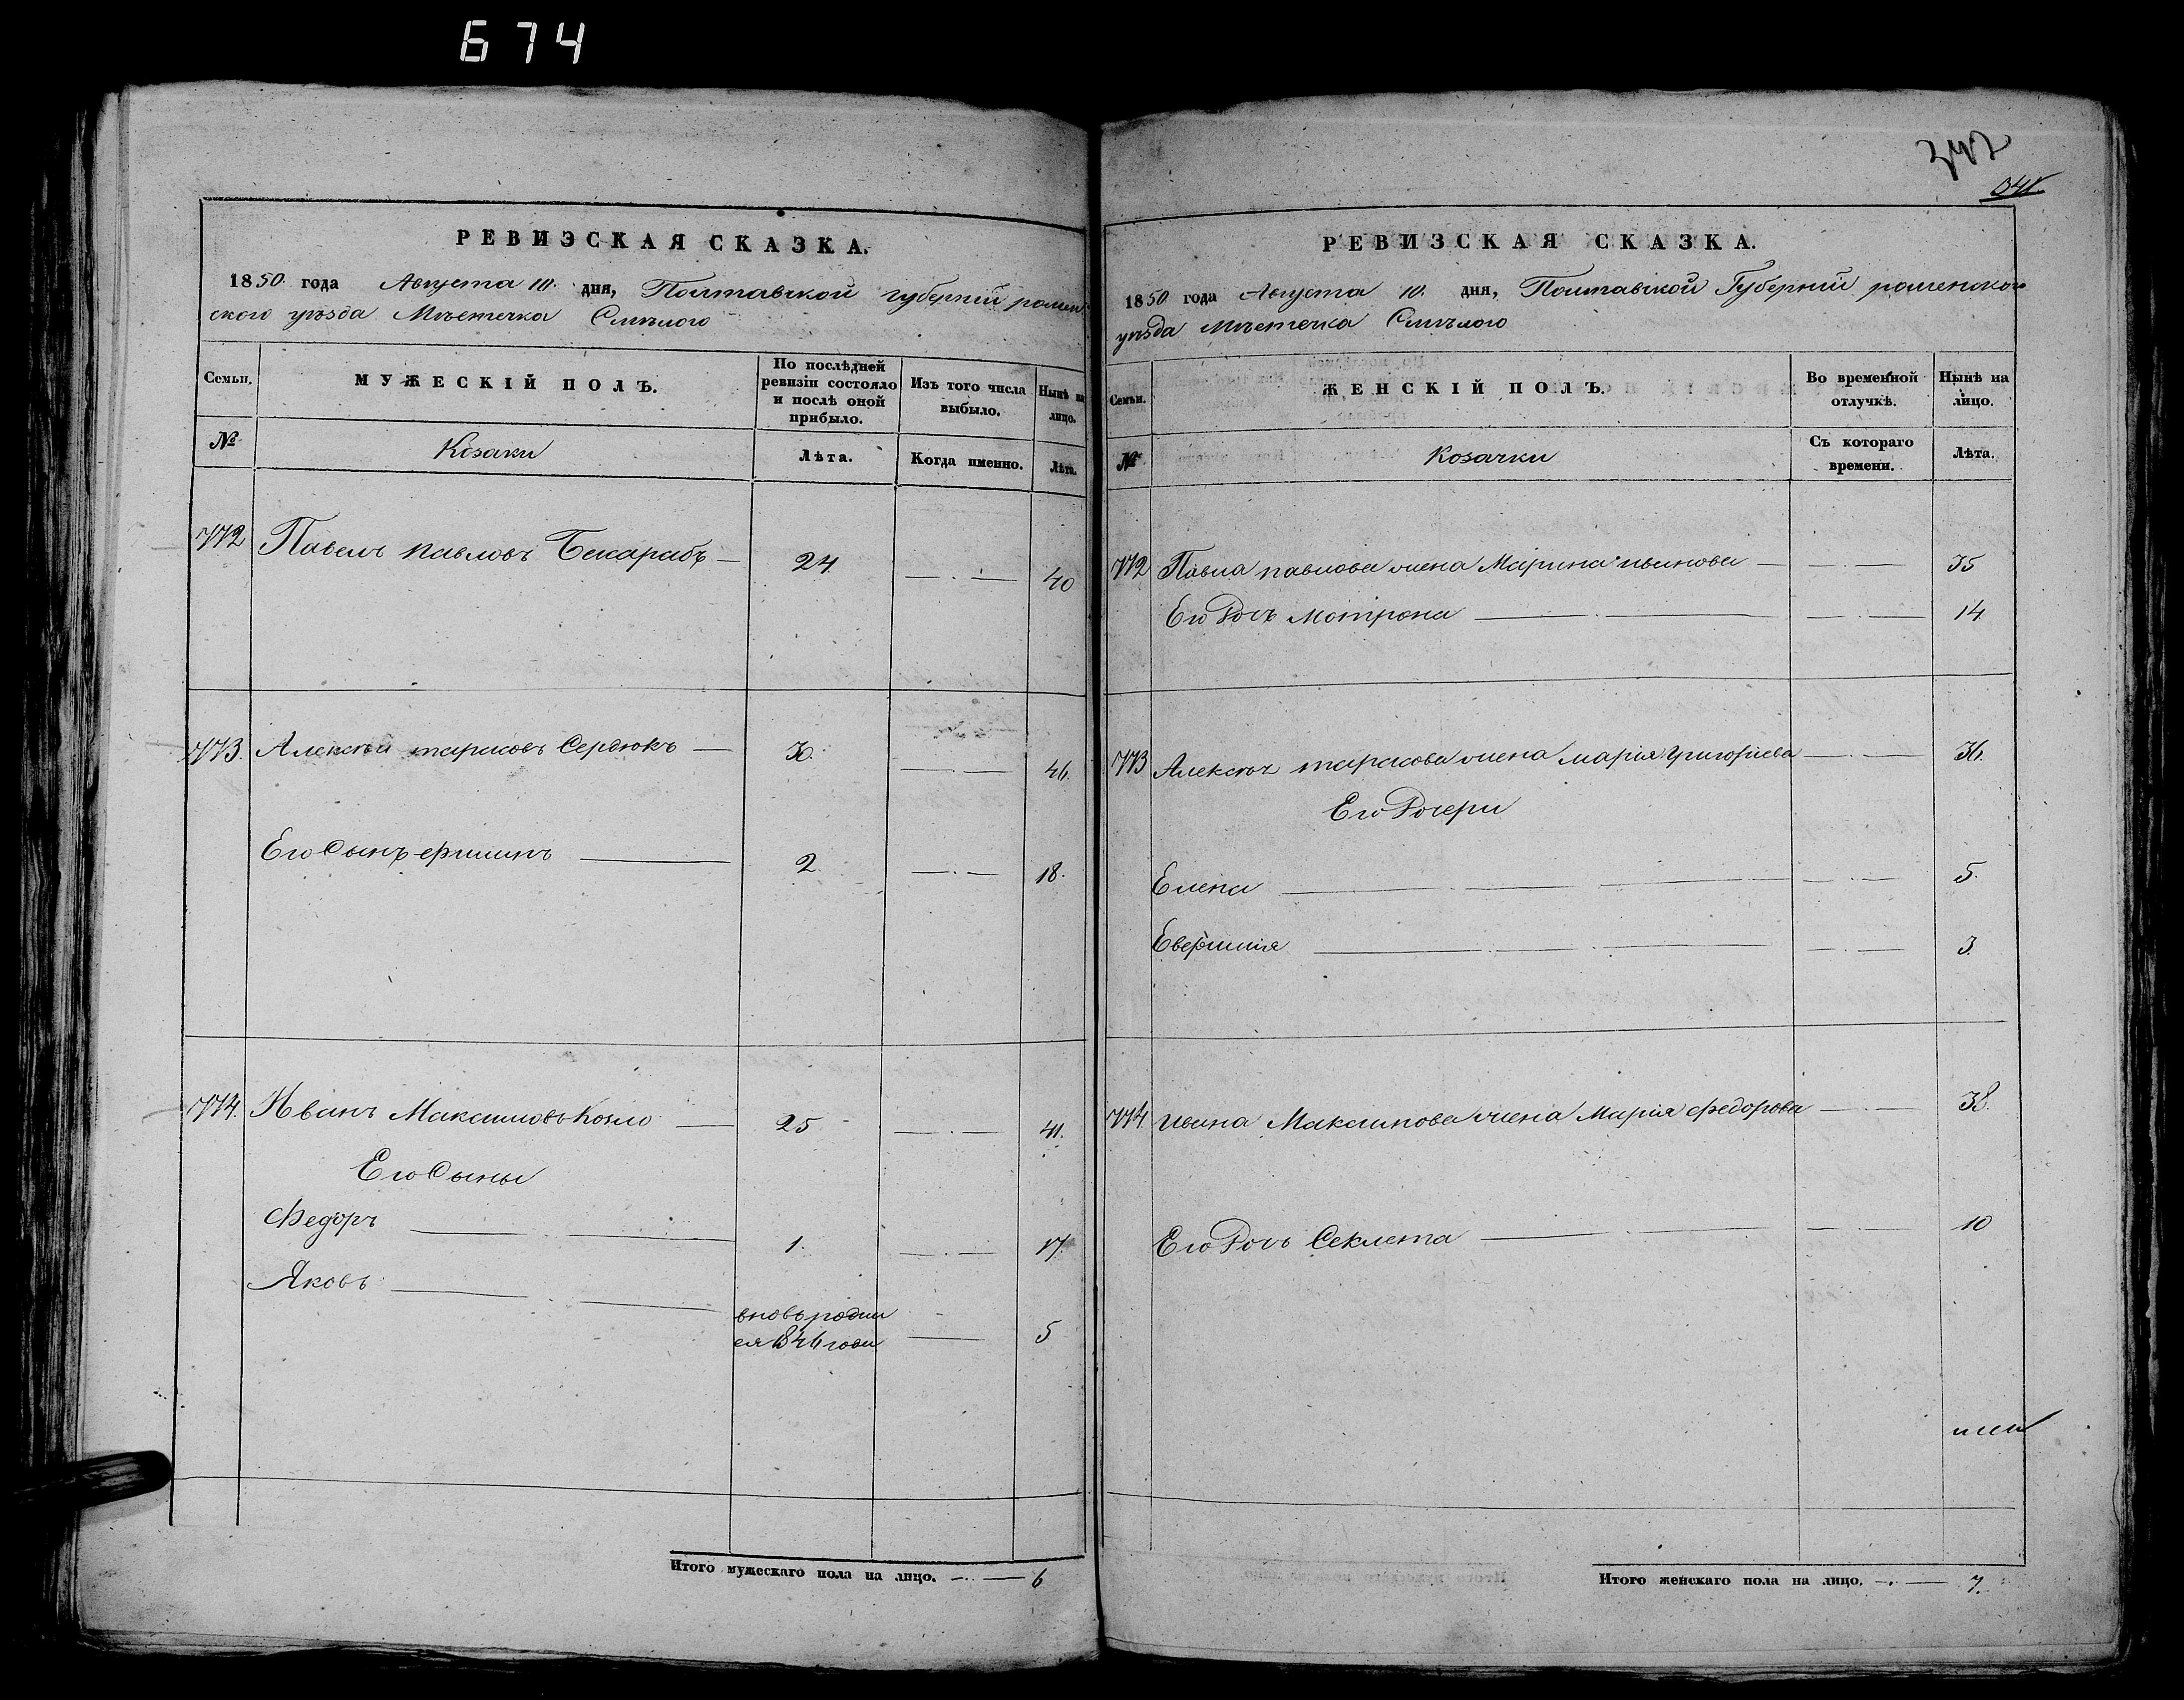 674
РЕВИЗСКАЯ СКАЗКА.
1850 года Августа 10. дня, Полтавской губернiй ромен
ского уѣзда Мѣстечка Смѣлого
Семьи.
МУЖЕСКІЙ ПОЛЪ.
По послѣдней ревизіи состояло и послѣ оной прибыло.
Изъ того числа выбыло.
Нынѣ на лицо.
№
Козаки
Лѣта.
Когда именно.
Лѣта.
772 Павелъ павловъ Бесарабъ — 24 — . — 40
773. Алексѣй тарасовъ Сердюкъ — 30. — . — 46.
Его Сынъ — 2 — . — 18.
774. Иванъ Максимовъ Козло — 25 — . — 41.
Его Сыны
Федоръ — 1. — . — 17.
Яковъ —
вновь роди
ся 1846 года — 5
Итого мужескаго пола на лицо. — 6
342
341
РЕВИЗСКАЯ СКАЗКА.
1850 года Августа 10. дня, Полтавской Губернiй роменского
уѣзда Мѣстечка Смѣлого
Семьи.
ЖЕНСКІЙ ПОЛЪ.
Во временной отлучкѣ.
Нынѣ на лицо.
№
Козачки
Съ котораго времени.
Лѣта.
772 Павла павлова жена Марина иванова — — . — 35
Его Дочь Мотрона — — . — 14
773 Алексѣя тарасова жена марія григоріева — . — 36.
Его Дочери
Елена — — . — 5.
— — . — 3
774. ивана Максимова жена Марія федорова — . — 38.
Его Дочь Секлета — — . — 10
Итого женскаго пола на лицо. — 7.